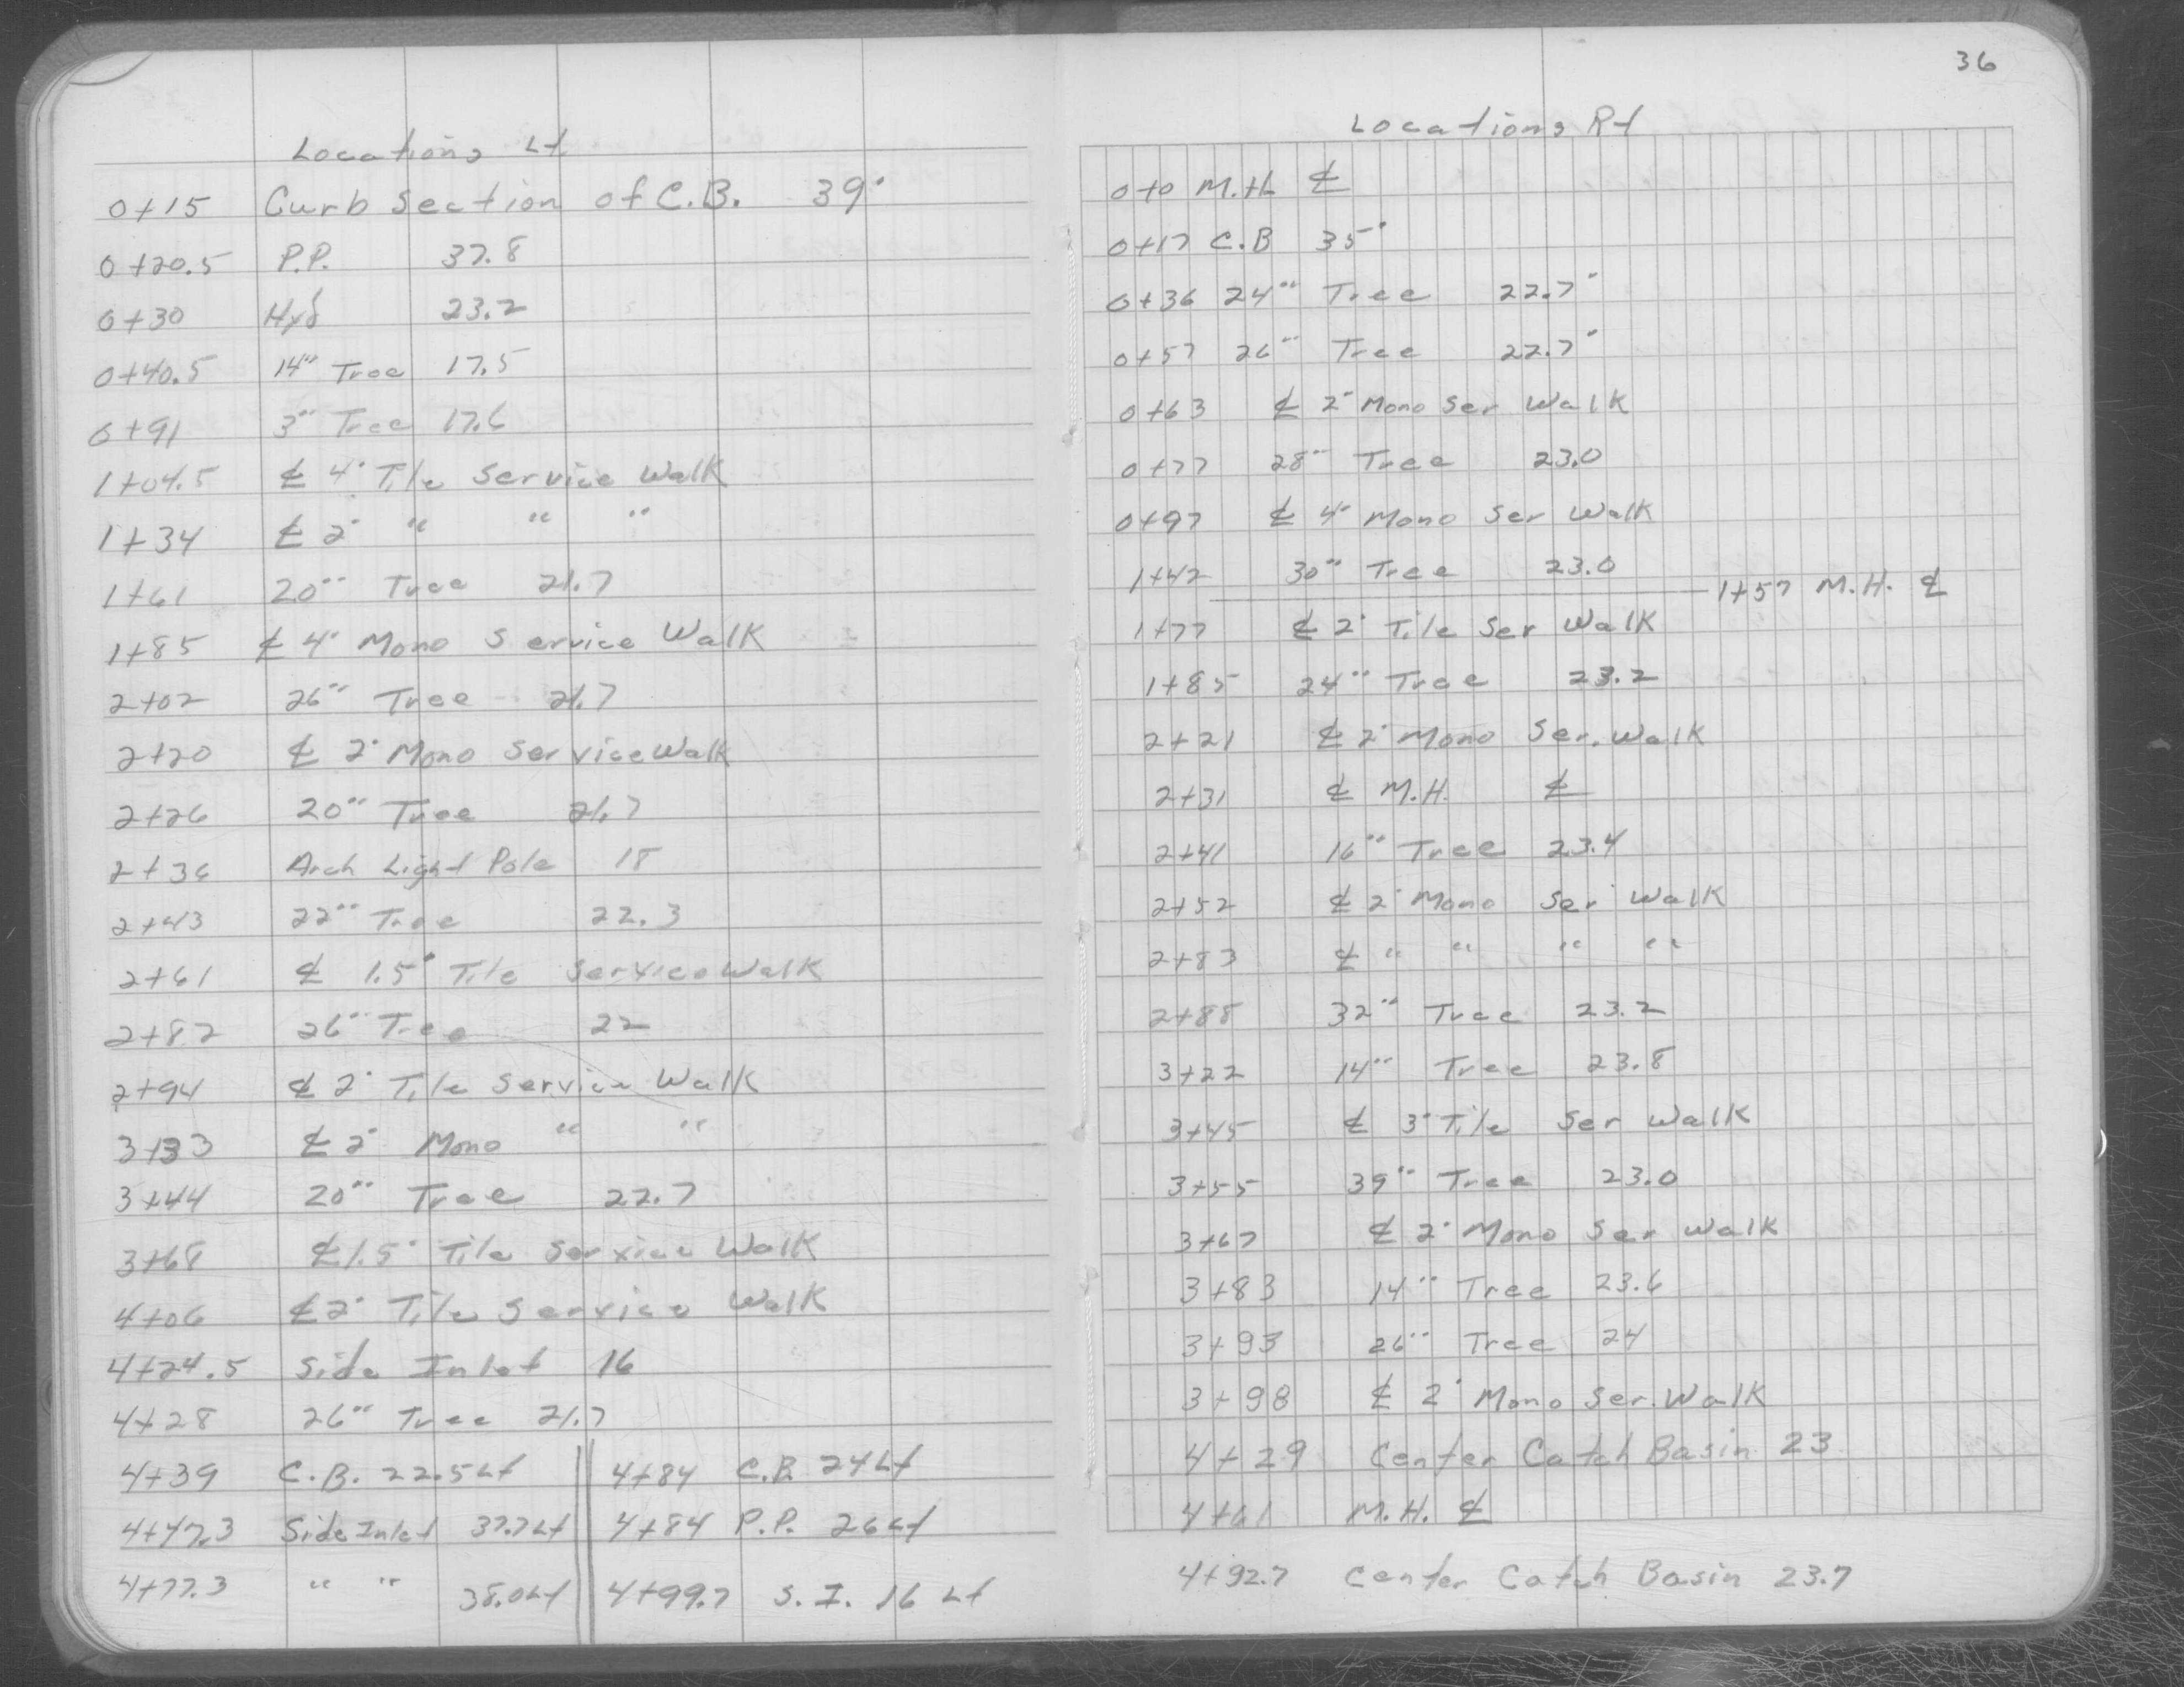 Locations Lt
0+15 Curb Section of C.B. 39'
0+20.5 P.P. 37.8
0+30 Hyd 23.2
0+40.5 14" Tree 17.5
0+91 3" Tree 17.6
1+04.5 ℄ 4' Tile Service Walk
1+34 ℄ 2' " " "
1+61 20" Tree 21.7
1+85 ℄ 4' Mono Service Walk
2+02 26" Tree 21.7
2+20 ℄ 2' Mono Service Walk
2+26 20" Tree 21.7
2+36 Arch Light Pole 18
2+43 22" Tree 22.3
2+61 ℄ 1.5' Tile Service Walk
2+82 26" Tree 22
2+94 ℄ 2' Tile Service Walk
3+33 ℄ 2' Mono " "
3+44 20" Tree 22.7
3+68 ℄ 1.5' Tile Service Walk
4+06 ℄ 2' Tile Service Walk
4+24.5 Side Inlet 16
4+28 26" Tree 21.7
4+39 C.B. 22.5 Lt 4+84 C.B. 24 Lt
4+47.3 Side Inlet 37.7 Lt 4+84 P.P. 26 Lt
4+77.3 " " 38.0 Lt 4+99.7 S.I. 16 Lt
36
Locations Rt
0+0 M.H. ℄
0+17 C.B 35'
0+36 24" Tree 22.7'
0+57 26" Tree 22.7'
0+63 ℄ 2' Mono Ser Walk
0+77 28" Tree 23.0
0+97 ℄ 4' Mono Ser Walk
1+42 30" Tree 23.0
1+57 M.H. ℄
1+77 ℄ 2' Tile Ser Walk
1+85 24" Tree 23.2
2+21 ℄ 2' Mono Ser. Walk
2+31 ℄ M.H. ℄
2+41 16" Tree 23.4
2+52 ℄ 2' Mono Ser Walk
2+83 ℄ " " " "
2+88 32" Tree 23.2
3+22 14" Tree 23.8
3+45 ℄ 3' Tile Ser Walk
3+55 39" Tree 23.0
3+67 ℄ 2' Mono Ser Walk
3+83 14" Tree 23.6
3+93 26" Tree 24
3+98 ℄ 2' Mono Ser. Walk
4+29 Center Catch Basin 23
4+61 M.H. ℄
4+92.7 Center Catch Basin 23.7